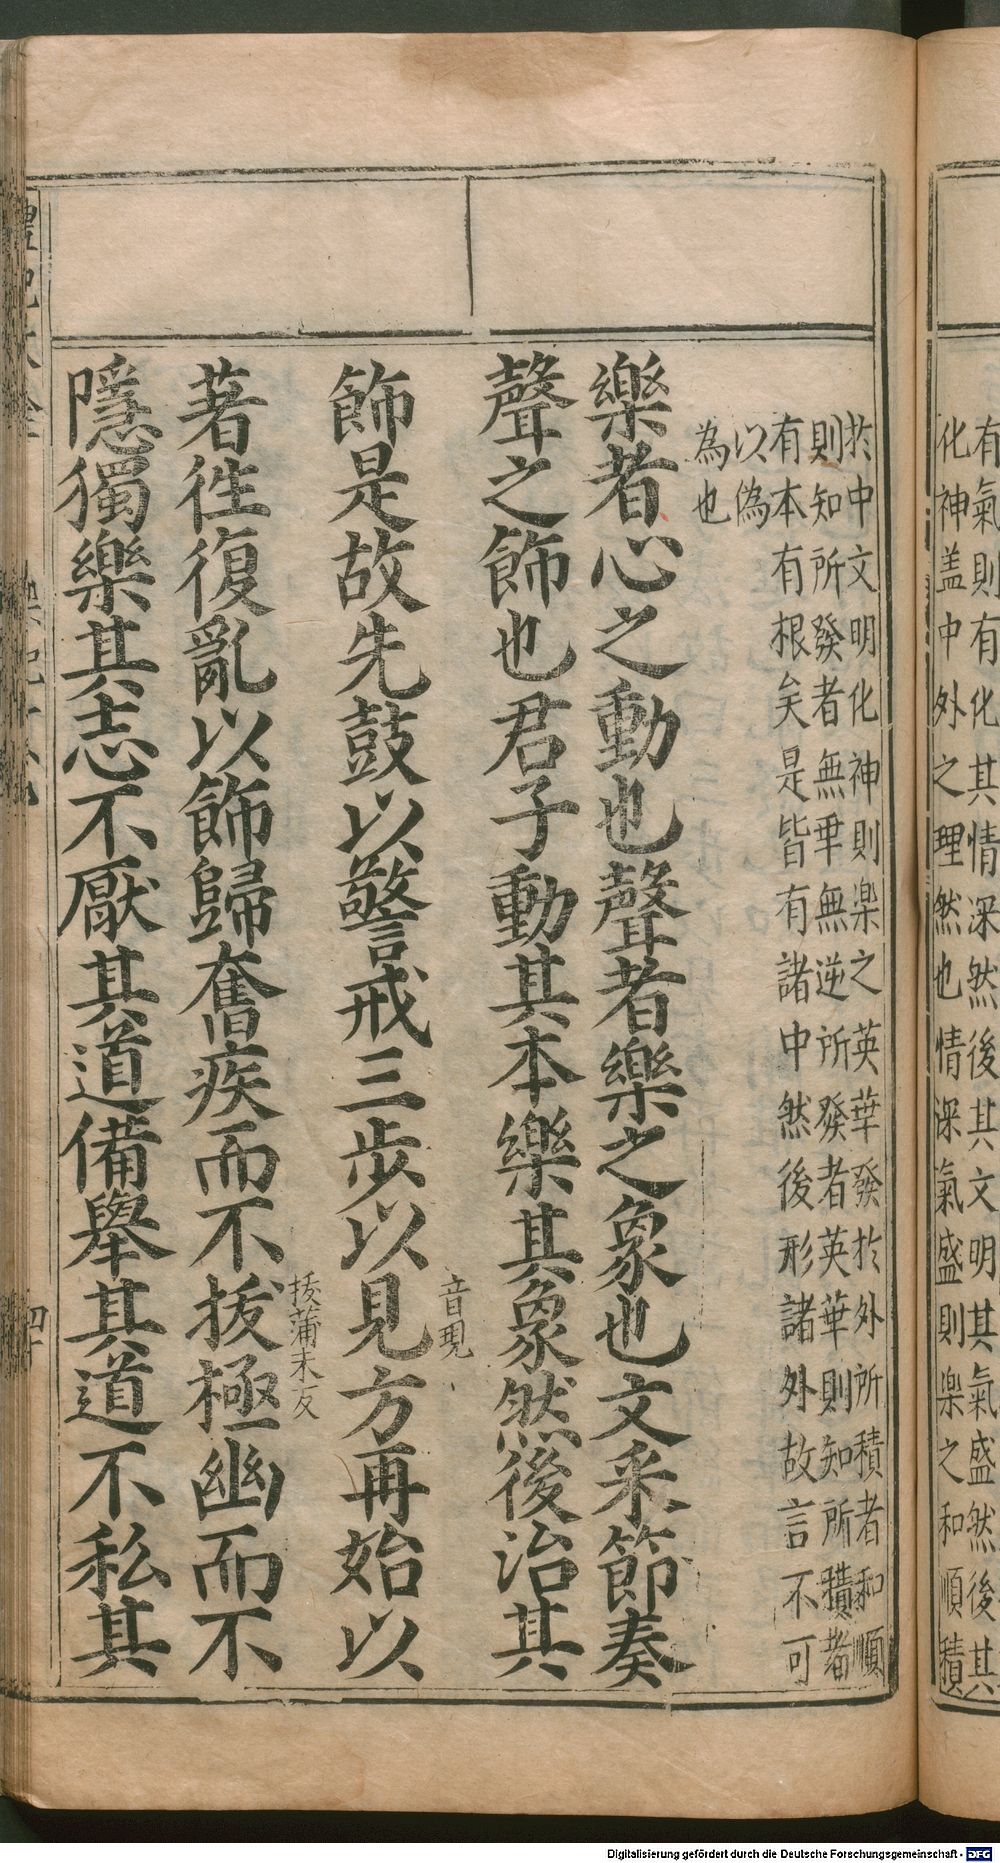 有氣則有化其情深然後其文明其氣盛然後其
化神盖中外之理然也情深氣盛則楽之和順積
於中文明化神則楽之英華發於外所積者和順
則知所發者無乖無逆所發者英華則知所積者
有本有根矣是皆有諸中然後形諸外故言不可
以偽
為也
樂者心之動也聲者樂之象也文采節奏
聲之飾也君子動其本樂其象然後治其
音現
飾是故先鼓以警戒三步以見方再始以
拔蒲末反
著徃復亂以飾歸奮疾而不拔極幽而不
隱獨樂其志不厭其道備舉其道不私其
Digitalisierung gefördert durch die Deutsche Forschungsgemeinschaft - DFG